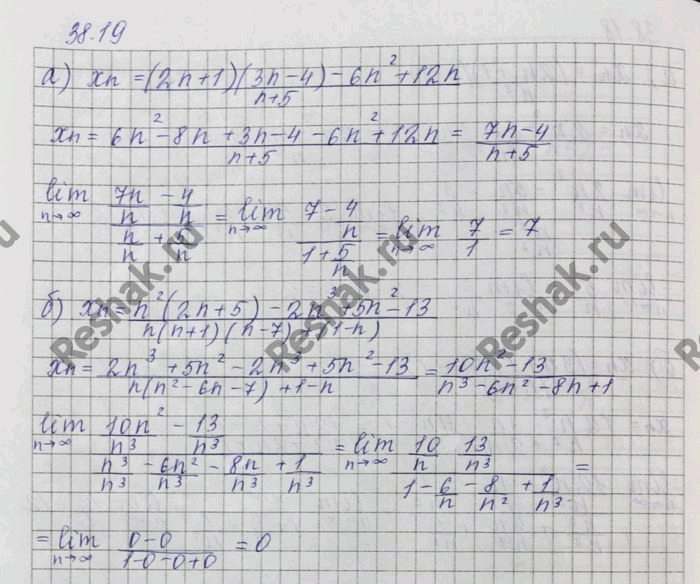 38.19
а) xn = (2n+1)(3n-4) - 6n²+12n / n+5
xn = 6n² - 8n + 3n - 4 - 6n² + 12n / n+5 = 7n-4 / n+5
lim n→∞ (7n/n - 4/n) / (n/n + 5/n) = lim n→∞ (7 - 4/n) / (1 + 5/n) = lim n→∞ 7/1 = 7
б) xn = n²(2n+5) - 2n³+5n²-13 / n(n+1)(n-7)+(1-n)
xn = 2n³ + 5n² - 2n³ + 5n² - 13 / n(n²-6n-7) + 1-n = 10n²-13 / n³-6n²-8n+1
lim n→∞ (10n²/n³ - 13/n³) / (n³/n³ - 6n²/n³ - 8n/n³ + 1/n³) = lim n→∞ (10/n 13/n³) / (1 - 6/n - 8/n² + 1/n³) =
= lim n→∞ 0-0 / 1-0-0+0 = 0
Reshak.ru